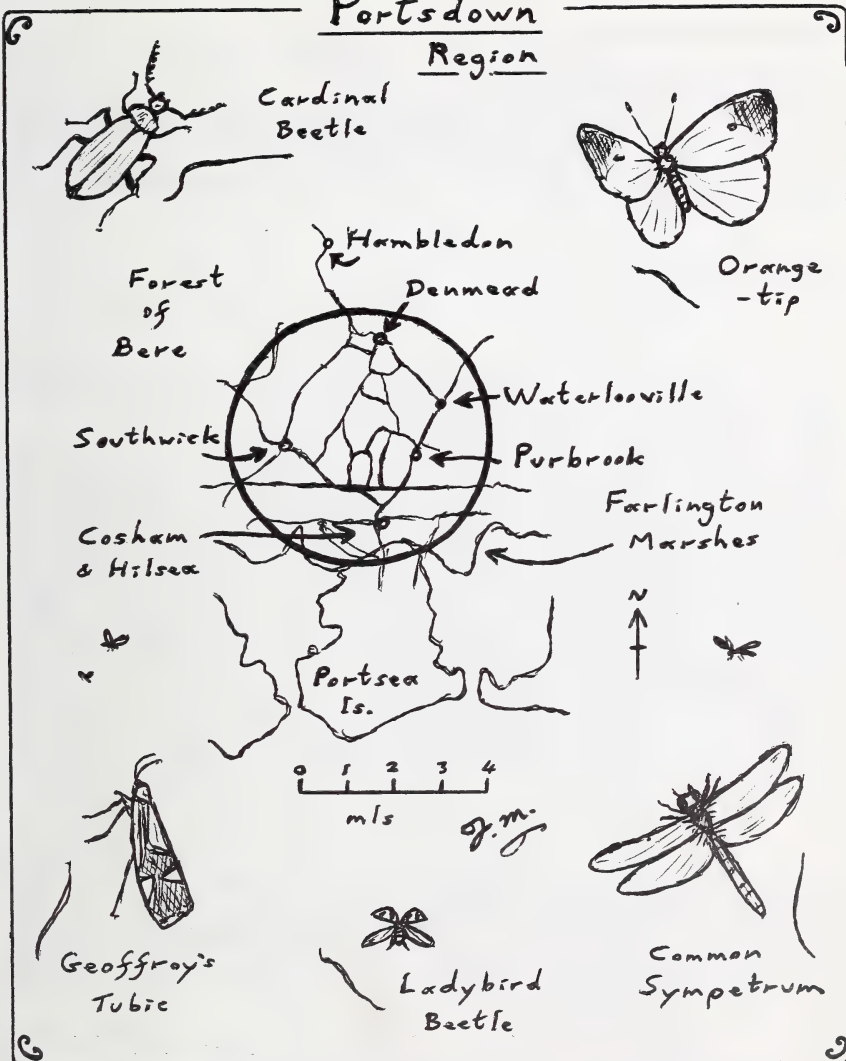 Portsdown
Region
Cardinal
Beetle
Hambledon
Forest
of
Bere
Denmead
Orange
-tip
Waterlooville
Southwick
Purbrook
Farlington
Marshes
Cosham
& Hilsea
N
Portsea
Is.
0 1 2 3 4
mls
J.M.
Geoffroy's
Tubic
Ladybird
Beetle
Common
Sympetrum